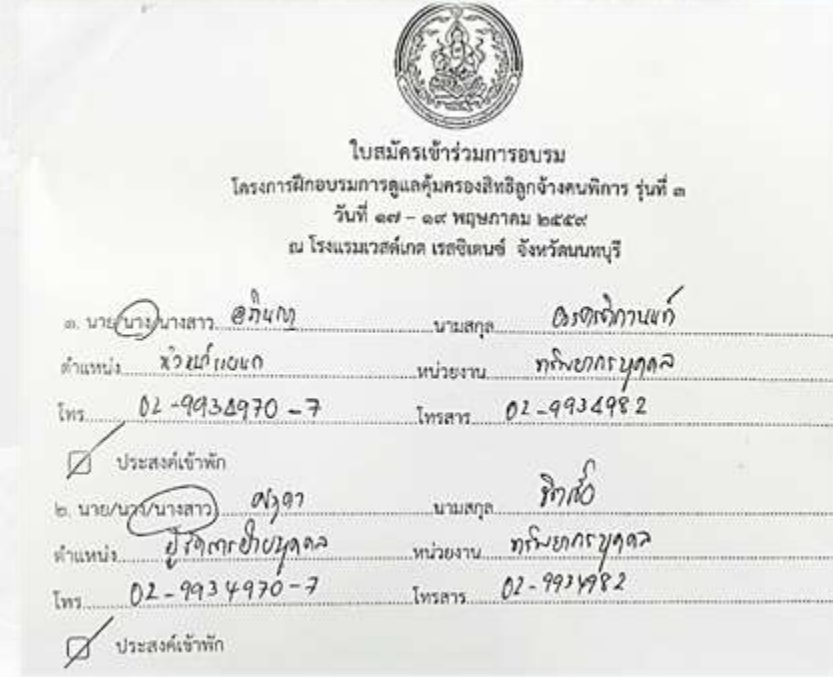 ใบสมัครเข้าร่วมการอบรม
โครงการฝึกอบรมการดูแลคุ้มครองสิทธิลูกจ้างคนพิการ รุ่นที่ ๓
วันที่ ๑๗ - ๑๙ พฤษภาคม ๒๕๕๙
ณ โรงแรมเวสต์เกต เรสซิเดนซ์ จังหวัดนนทบุรี
๑. นาย/นาง/นางสาว อภิญญา นามสกุล
ตำแหน่ง หัวหน้าแผนก หน่วยงาน ทรัพยากรบุคคล
โทร 02-9934970-7 โทรสาร 02-9934982
ประสงค์เข้าพัก
๒. นาย/นาง/นางสาว นามสกุล
ตำแหน่ง ผู้จัดการฝ่ายบุคคล หน่วยงาน ทรัพยากรบุคคล
โทร 02-9934970-7 โทรสาร 02-9934982
ประสงค์เข้าพัก